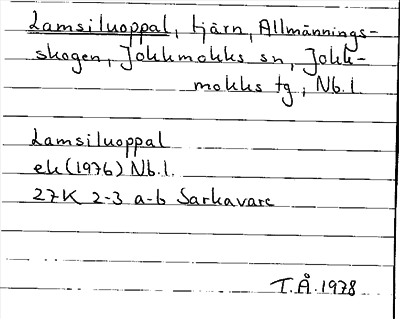 Lamsiluoppal, tjärn, Allmännings-
skogen, Jokkmokks sn, Jokk-
mokks tg, Nb.l.
Lamsiluoppal
ek (1976) Nb.l.
27K 2-3 a-b Sarkavare
T.Å. 1978